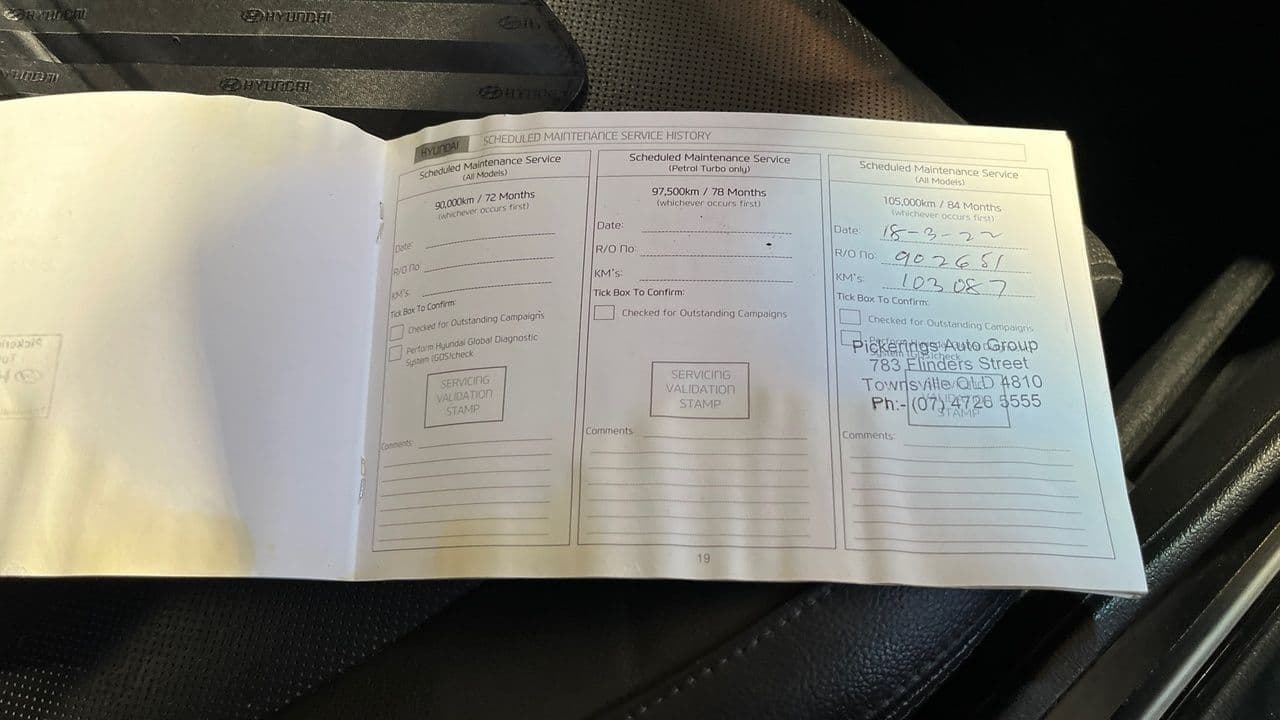 HYUNDAI
HYUNDAI
HYUNDAI
HYUNDAI
HYUNDAI SCHEDULED MAINTENANCE SERVICE HISTORY
Scheduled Maintenance Service
(All Models)
90,000km / 72 Months
(whichever occurs first)
Date:
R/O No:
KM's:
Tick Box To Confirm:
Checked for Outstanding Campaigns
Perform Hyundai Global Diagnostic
System (GDS)check
SERVICING
VALIDATION
STAMP
Comments:
Scheduled Maintenance Service
(Petrol Turbo only)
97,500km / 78 Months
(whichever occurs first)
Date:
R/O No:
KM's:
Tick Box To Confirm:
Checked for Outstanding Campaigns
SERVICING
VALIDATION
STAMP
Comments:
Scheduled Maintenance Service
(All Models)
105,000km / 84 Months
(whichever occurs first)
Date: 18-3-22
R/O No: 902651
KM's: 103 087
Tick Box To Confirm:
Checked for Outstanding Campaigns
Pickerings Auto Group
783 Flinders Street
Townsville QLD 4810
Ph:- (07) 4726 5555
STAMP
Comments:
19